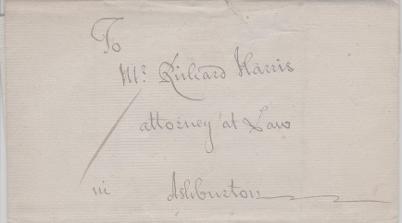 To
Mr. Richard Harris
attorney at Law
in Ashburton